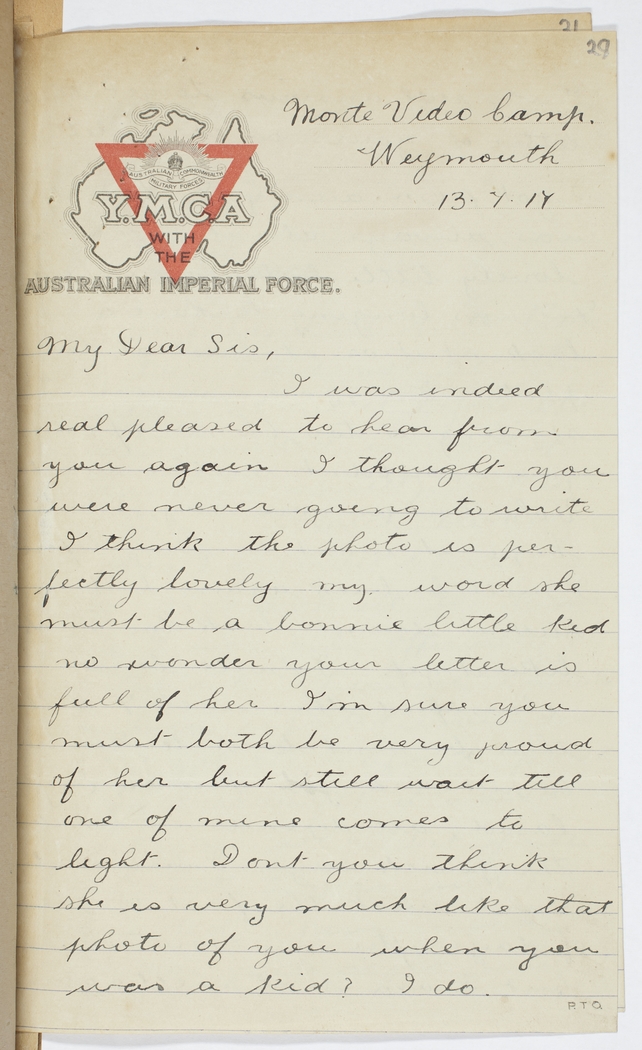 21
29
Monte Video Camp.
Weymouth
13. 7. 17
AUSTRALIAN COMMONWEALTH
MILITARY FORCES
Y.M.C.A
WITH
THE
AUSTRALIAN IMPERIAL FORCE.
My Dear Sis,
I was indeed
real pleased to hear from
you again I thought you
were never going to write
I think the photo is per-
fectly lovely my word she
must be a bonnie little kid
no wonder your letter is
full of her I'm sure you
must both be very proud
of her but still wait till
one of mine comes to
light. Dont you think
she is very much like that
photo of you when you
was a kid? I do.
P.T.O